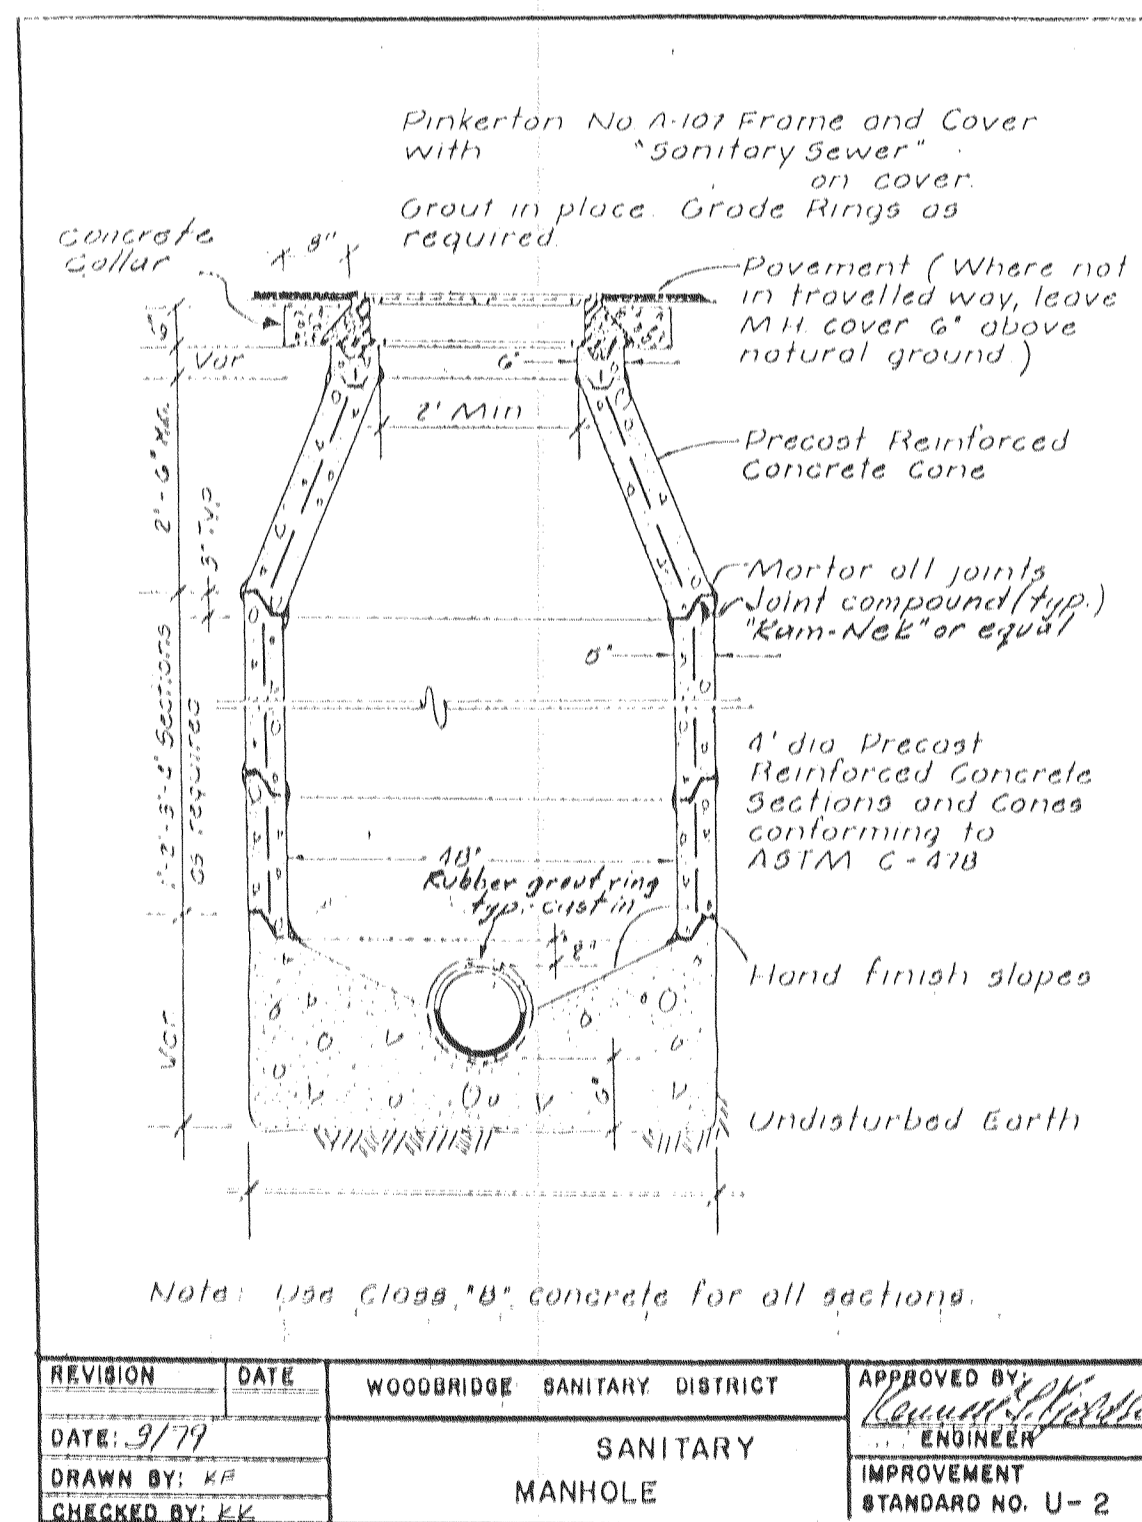 Pinkerton No A-107 Frame and Cover
with "Sanitary Sewer"
on cover.
Grout in place. Grade Rings as
required.
Concrete
Collar
8"
Pavement (Where not
in travelled way, leave
M.H. cover 6" above
natural ground.)
Var
6"
2' Min
Precast Reinforced
Concrete Cone
2'-6" Max.
3" Typ
Mortar all joints
Joint compound (typ.)
"Ram-Nek" or equal
Sections
as required
4' dia Precast
Reinforced Concrete
Sections and Cones
conforming to
ASTM C-478
48"
Rubber grout ring
typ. cast in
2"
Hand finish slopes
Var
6"
Undisturbed Earth
Note: Use Class "B" concrete for all sections.
REVISION DATE
WOODBRIDGE SANITARY DISTRICT
APPROVED BY:
ENGINEER
DATE: 9/79
SANITARY
MANHOLE
DRAWN BY:
CHECKED BY: KK
IMPROVEMENT
STANDARD NO. U-2